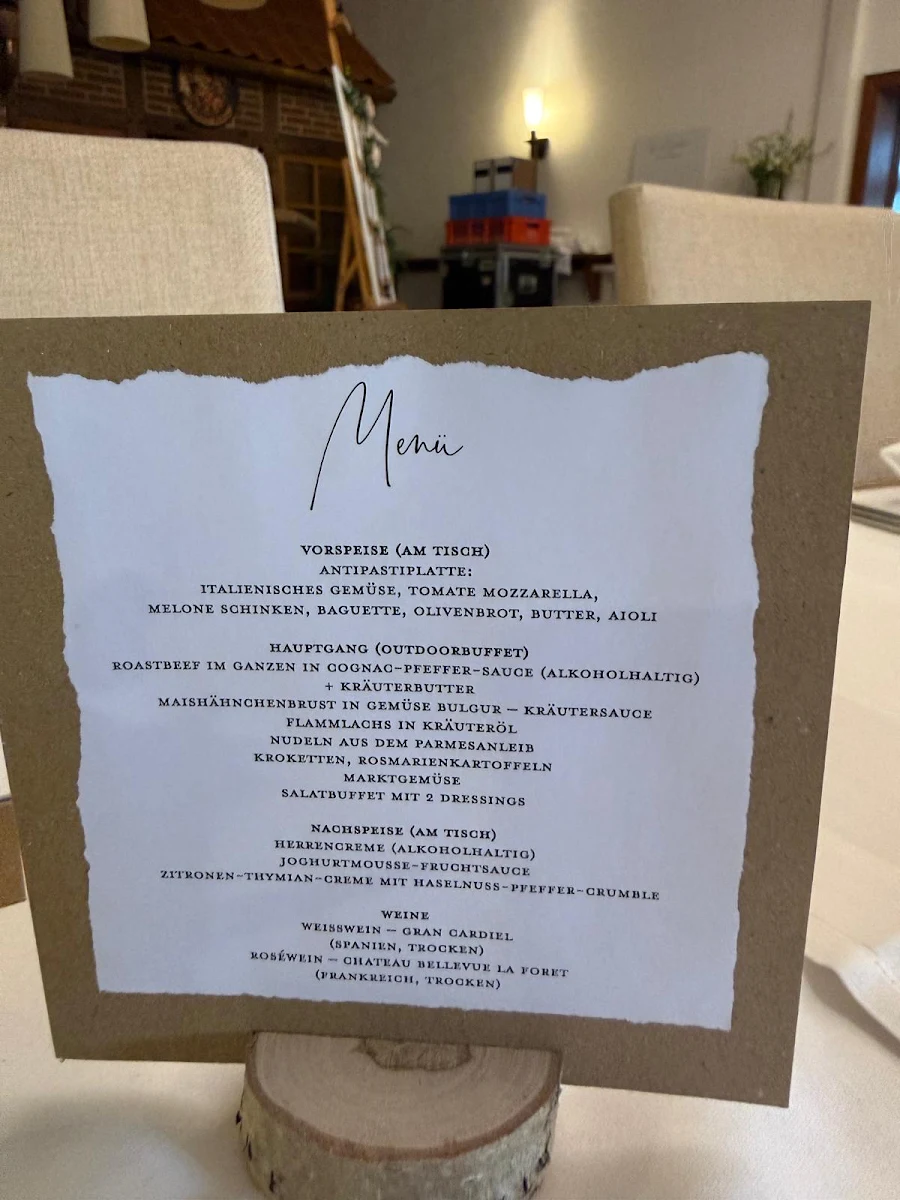 Menü
VORSPEISE (AM TISCH)
ANTIPASTIPLATTE:
ITALIENISCHES GEMÜSE, TOMATE MOZZARELLA,
MELONE SCHINKEN, BAGUETTE, OLIVENBROT, BUTTER, AIOLI
HAUPTGANG (OUTDOORBUFFET)
ROASTBEEF IM GANZEN IN COGNAC-PFEFFER-SAUCE (ALKOHOLHALTIG)
+ KRÄUTERBUTTER
MAISHÄHNCHENBRUST IN GEMÜSE BULGUR – KRÄUTERSAUCE
FLAMMLACHS IN KRÄUTERÖL
NUDELN AUS DEM PARMESANLEIB
KROKETTEN, ROSMARIENKARTOFFELN
MARKTGEMÜSE
SALATBUFFET MIT 2 DRESSINGS
NACHSPEISE (AM TISCH)
HERRENCREME (ALKOHOLHALTIG)
JOGHURTMOUSSE-FRUCHTSAUCE
ZITRONEN-THYMIAN-CREME MIT HASELNUSS-PFEFFER-CRUMBLE
WEINE
WEISSWEIN – GRAN CARDIEL
(SPANIEN, TROCKEN)
ROSÉWEIN – CHATEAU BELLEVUE LA FORET
(FRANKREICH, TROCKEN)